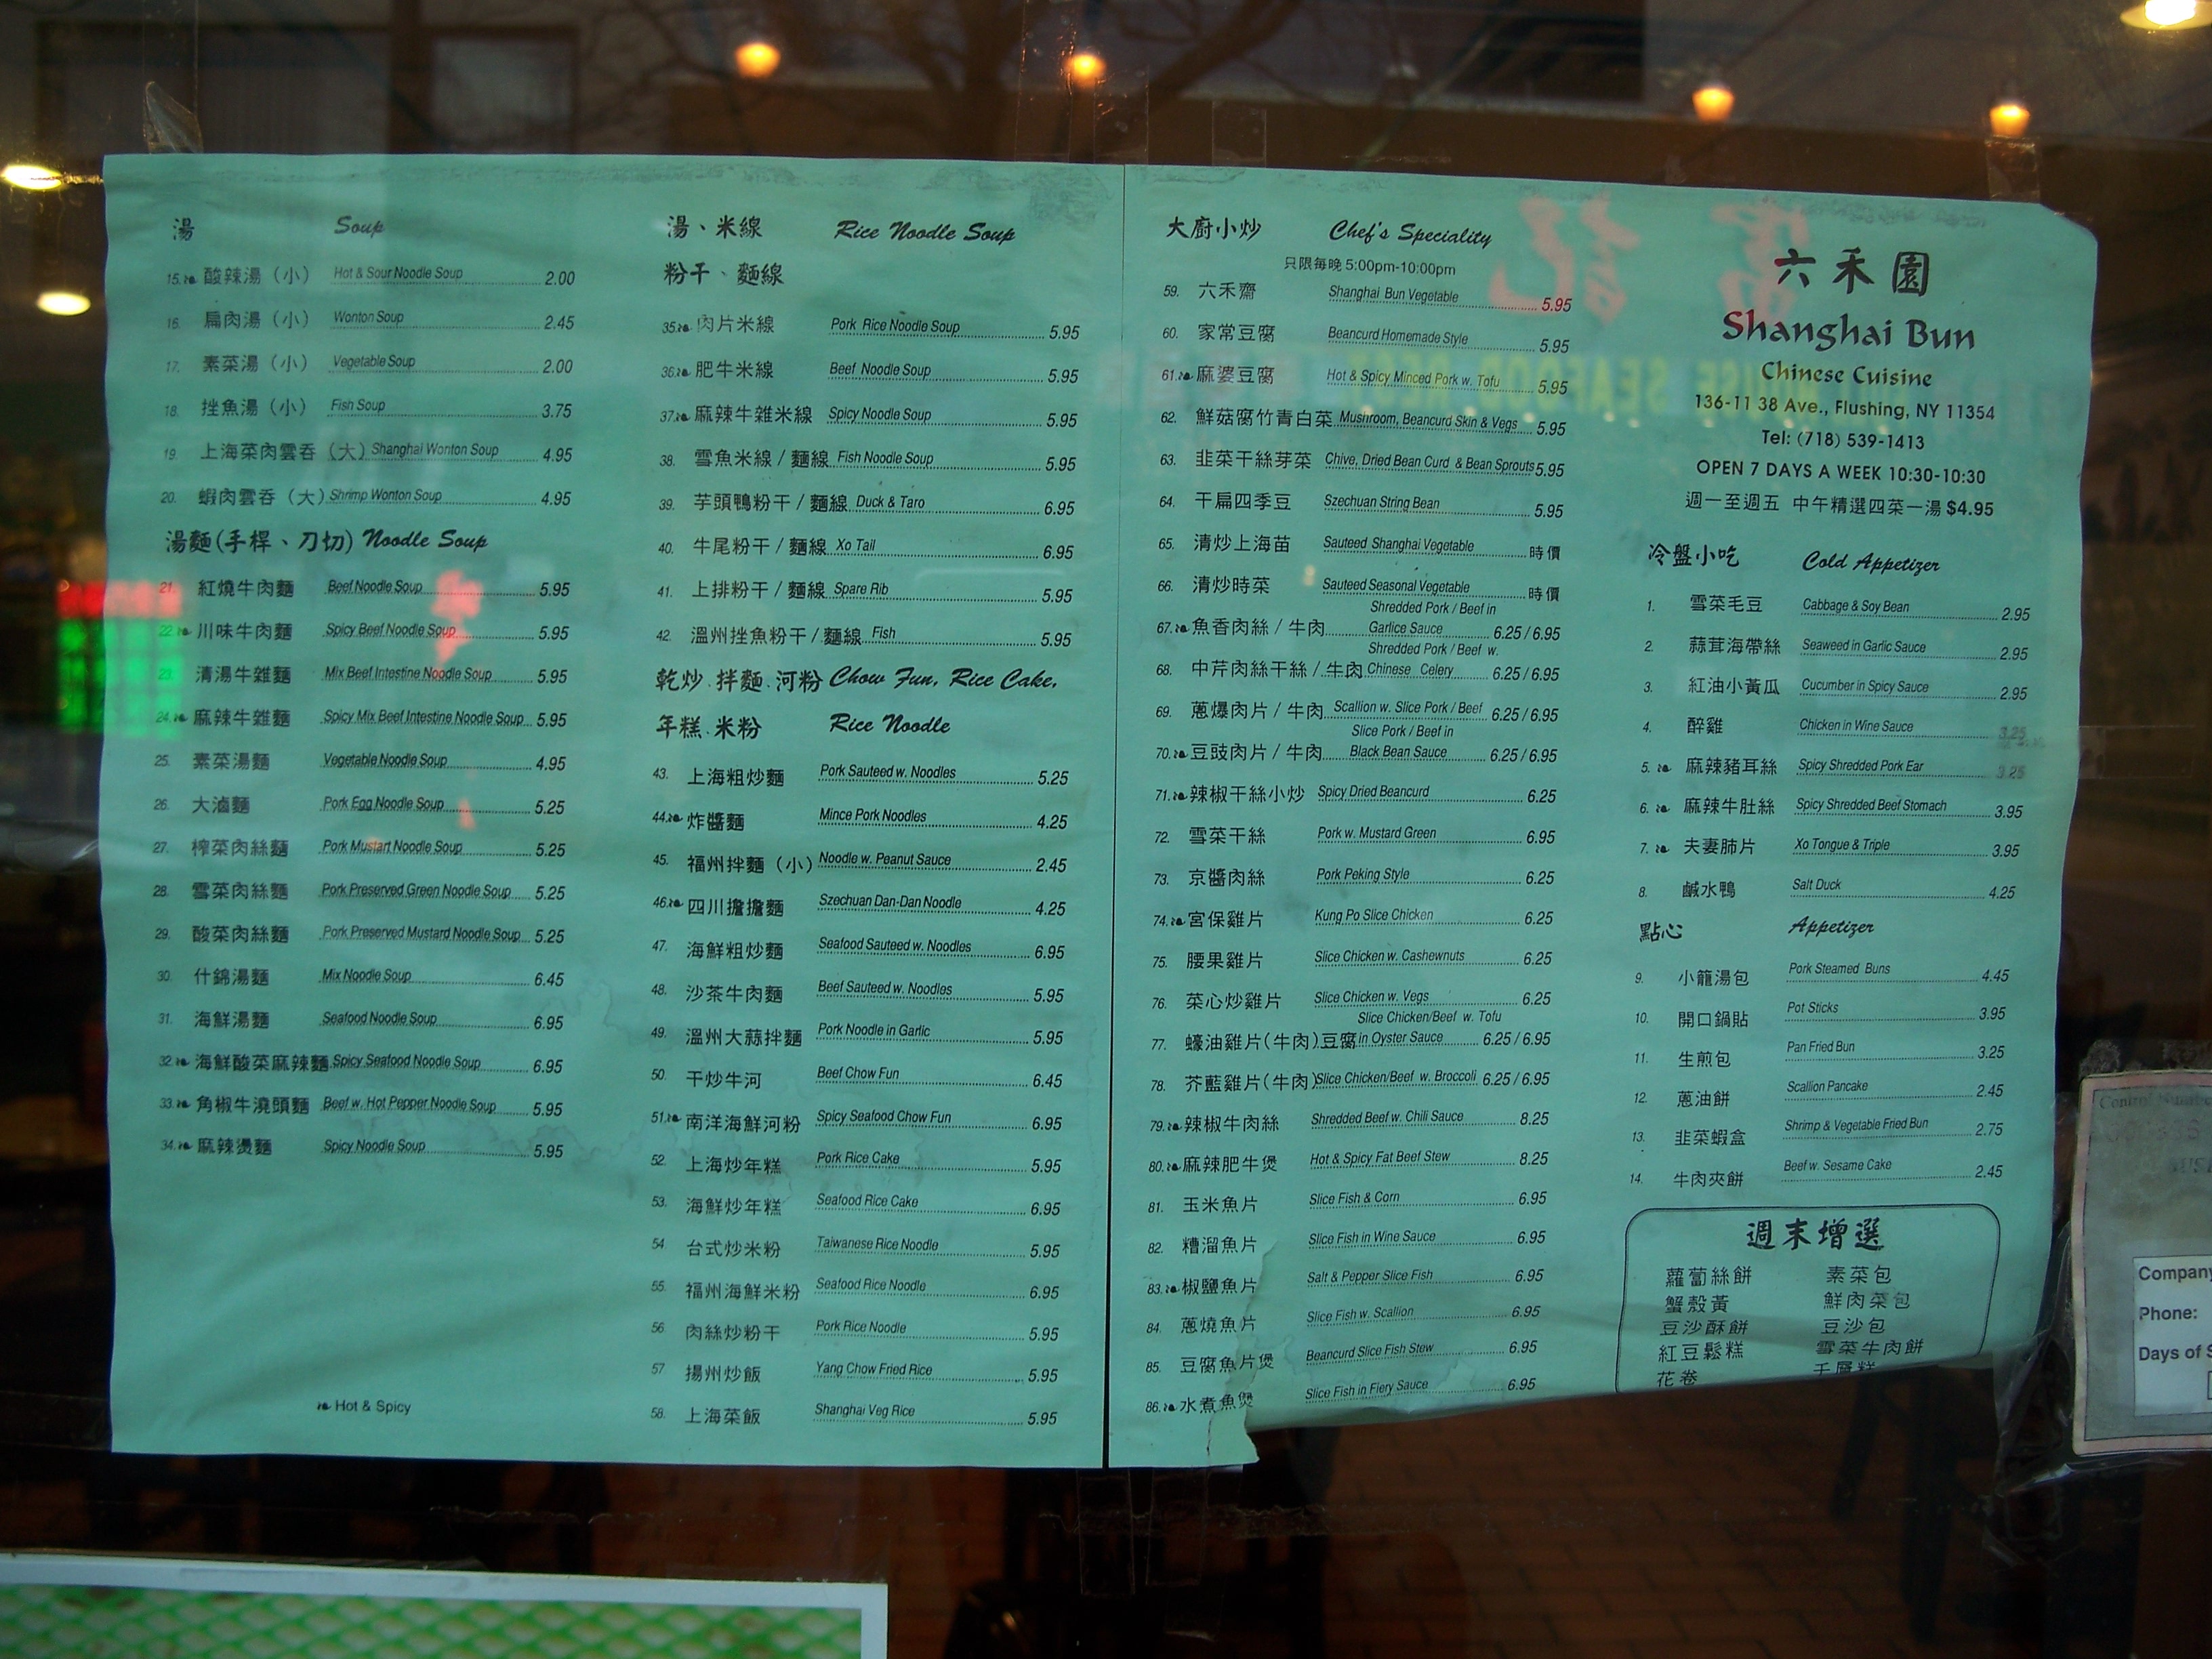 湯 Soup
15. 酸辣湯（小） Hot & Sour Noodle Soup 2.00
16. 扁肉湯（小） Wonton Soup 2.45
17. 素菜湯（小） Vegetable Soup 2.00
18. 挫魚湯（小） Fish Soup 3.75
19. 上海菜肉雲吞（大） Shanghai Wonton Soup 4.95
20. 蝦肉雲吞（大） Shrimp Wonton Soup 4.95
湯麵(手桿、刀切) Noodle Soup
21. 紅燒牛肉麵 Beef Noodle Soup 5.95
22. 川味牛肉麵 Spicy Beef Noodle Soup 5.95
23. 清湯牛雜麵 Mix Beef Intestine Noodle Soup 5.95
24. 麻辣牛雜麵 Spicy Mix Beef Intestine Noodle Soup 5.95
25. 素菜湯麵 Vegetable Noodle Soup 4.95
26. 大滷麵 Pork Egg Noodle Soup 5.25
27. 榨菜肉絲麵 Pork Mustart Noodle Soup 5.25
28. 雪菜肉絲麵 Pork Preserved Green Noodle Soup 5.25
29. 酸菜肉絲麵 Pork Preserved Mustard Noodle Soup 5.25
30. 什錦湯麵 Mix Noodle Soup 6.45
31. 海鮮湯麵 Seafood Noodle Soup 6.95
32. 海鮮酸菜麻辣麵 Spicy Seafood Noodle Soup 6.95
33. 角椒牛澆頭麵 Beef w. Hot Pepper Noodle Soup 5.95
34. 麻辣燙麵 Spicy Noodle Soup 5.95
Hot & Spicy
湯、米線 Rice Noodle Soup
粉干、麵線
35. 肉片米線 Pork Rice Noodle Soup 5.95
36. 肥牛米線 Beef Noodle Soup 5.95
37. 麻辣牛雜米線 Spicy Noodle Soup 5.95
38. 雪魚米線 / 麵線 Fish Noodle Soup 5.95
39. 芋頭鴨粉干 / 麵線 Duck & Taro 6.95
40. 牛尾粉干 / 麵線 Xo Tail 6.95
41. 上排粉干 / 麵線 Spare Rib 5.95
42. 溫州挫魚粉干 / 麵線 Fish 5.95
乾炒.拌麵.河粉 Chow Fun, Rice Cake,
年糕.米粉 Rice Noodle
43. 上海粗炒麵 Pork Sauteed w. Noodles 5.25
44. 炸醬麵 Mince Pork Noodles 4.25
45. 福州拌麵（小） Noodle w. Peanut Sauce 2.45
46. 四川擔擔麵 Szechuan Dan-Dan Noodle 4.25
47. 海鮮粗炒麵 Seafood Sauteed w. Noodles 6.95
48. 沙茶牛肉麵 Beef Sauteed w. Noodles 5.95
49. 溫州大蒜拌麵 Pork Noodle in Garlic 5.95
50. 干炒牛河 Beef Chow Fun 6.45
51. 南洋海鮮河粉 Spicy Seafood Chow Fun 6.95
52. 上海炒年糕 Pork Rice Cake 5.95
53. 海鮮炒年糕 Seafood Rice Cake 6.95
54 台式炒米粉 Taiwanese Rice Noodle 5.95
55. 福州海鮮米粉 Seafood Rice Noodle 6.95
56 肉絲炒粉干 Pork Rice Noodle 5.95
57 揚州炒飯 Yang Chow Fried Rice 5.95
58. 上海菜飯 Shanghai Veg Rice 5.95
大廚小炒 Chef's Speciality
只限每晚 5:00pm-10:00pm
59. 六禾齋 Shanghai Bun Vegetable 5.95
60. 家常豆腐 Beancurd Homemade Style 5.95
61. 麻婆豆腐 Hot & Spicy Minced Pork w. Tofu 5.95
62. 鮮菇腐竹青白菜 Mushroom, Beancurd Skin & Vegs 5.95
63. 韭菜干絲芽菜 Chive, Dried Bean Curd & Bean Sprouts 5.95
64. 干扁四季豆 Szechuan String Bean 5.95
65. 清炒上海苗 Sauteed Shanghai Vegetable 時價
66. 清炒時菜 Sauteed Seasonal Vegetable 時價
Shredded Pork / Beef in
67. 魚香肉絲 / 牛肉 Garlice Sauce 6.25 / 6.95
Shredded Pork / Beef w.
68. 中芹肉絲干絲 / 牛肉 Chinese Celery 6.25 / 6.95
69. 蔥爆肉片 / 牛肉 Scallion w. Slice Pork / Beef 6.25 / 6.95
Slice Pork / Beef in
70. 豆豉肉片 / 牛肉 Black Bean Sauce 6.25 / 6.95
71. 辣椒干絲小炒 Spicy Dried Beancurd 6.25
72. 雪菜干絲 Pork w. Mustard Green 6.95
73. 京醬肉絲 Pork Peking Style 6.25
74. 宮保雞片 Kung Po Slice Chicken 6.25
75. 腰果雞片 Slice Chicken w. Cashewnuts 6.25
76. 菜心炒雞片 Slice Chicken w. Vegs 6.25
Slice Chicken/Beef w. Tofu
77. 蠔油雞片(牛肉)豆腐 in Oyster Sauce 6.25 / 6.95
78. 芥藍雞片(牛肉) Slice Chicken/Beef w. Broccoli 6.25 / 6.95
79. 辣椒牛肉絲 Shredded Beef w. Chili Sauce 8.25
80. 麻辣肥牛煲 Hot & Spicy Fat Beef Stew 8.25
81. 玉米魚片 Slice Fish & Corn 6.95
82. 糟溜魚片 Slice Fish in Wine Sauce 6.95
83. 椒鹽魚片 Salt & Pepper Slice Fish 6.95
84. 蔥燒魚片 Slice Fish w. Scallion 6.95
85. 豆腐魚片煲 Beancurd Slice Fish Stew 6.95
86. 水煮魚煲 Slice Fish in Fiery Sauce 6.95
六禾園
Shanghai Bun
Chinese Cuisine
136-11 38 Ave., Flushing, NY 11354
Tel: (718) 539-1413
OPEN 7 DAYS A WEEK 10:30-10:30
週一至週五 中午精選四菜一湯 $4.95
冷盤小吃 Cold Appetizer
1. 雪菜毛豆 Cabbage & Soy Bean 2.95
2. 蒜茸海帶絲 Seaweed in Garlic Sauce 2.95
3. 紅油小黃瓜 Cucumber in Spicy Sauce 2.95
4. 醉雞 Chicken in Wine Sauce 3.25
5. 麻辣豬耳絲 Spicy Shredded Pork Ear 3.25
6. 麻辣牛肚絲 Spicy Shredded Beef Stomach 3.95
7. 夫妻肺片 Xo Tongue & Triple 3.95
8. 鹹水鴨 Salt Duck 4.25
點心 Appetizer
9. 小籠湯包 Pork Steamed Buns 4.45
10. 開口鍋貼 Pot Sticks 3.95
11. 生煎包 Pan Fried Bun 3.25
12. 蔥油餅 Scallion Pancake 2.45
13. 韭菜蝦盒 Shrimp & Vegetable Fried Bun 2.75
14. 牛肉夾餅 Beef w. Sesame Cake 2.45
週末增選
蘿蔔絲餅 素菜包
蟹殼黃 鮮肉菜包
豆沙酥餅 豆沙包
紅豆鬆糕 雪菜牛肉餅
花卷 千層糕
Company
Phone:
Days of